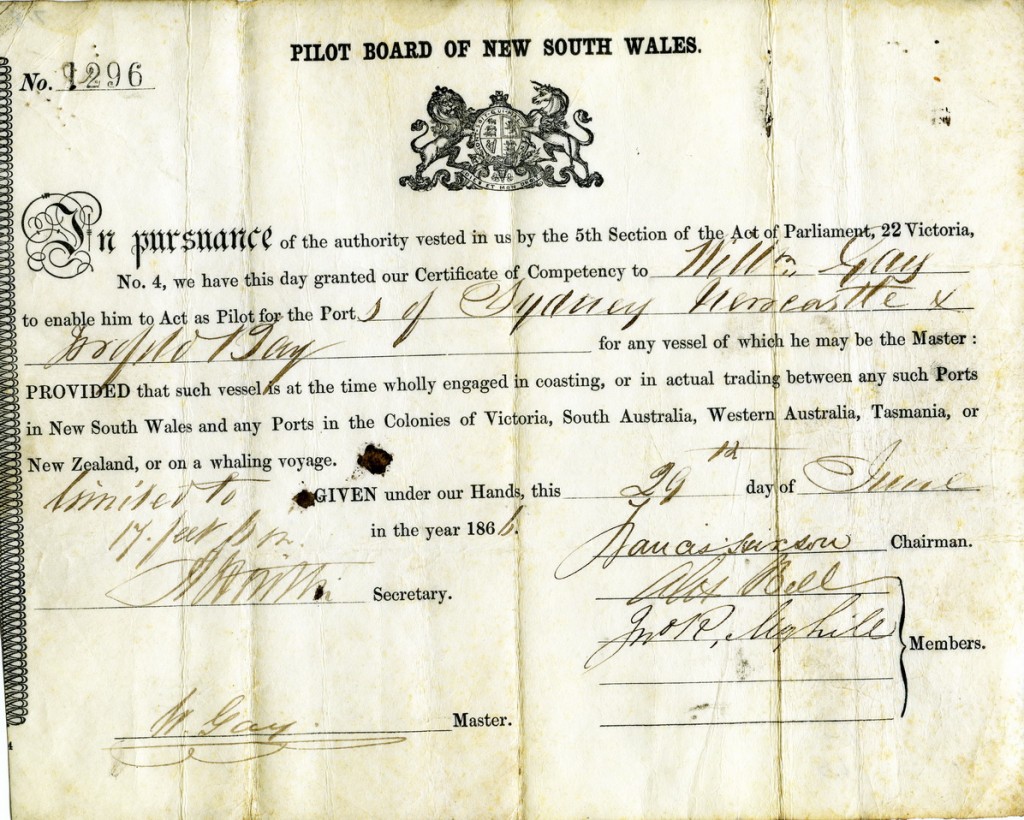 PILOT BOARD OF NEW SOUTH WALES.
No. 1296
In pursuance of the authority vested in us by the 5th Section of the Act of Parliament, 22 Victoria,
No. 4, we have this day granted our Certificate of Competency to Willm. Gay
to enable him to Act as Pilot for the Ports of Sydney Newcastle &
Bay for any vessel of which he may be the Master :
PROVIDED that such vessel is at the time wholly engaged in coasting, or in actual trading between any such Ports
in New South Wales and any Ports in the Colonies of Victoria, South Australia, Western Australia, Tasmania, or
New Zealand, or on a whaling voyage.
limited to GIVEN under our Hands, this 29th day of June
17. feet in the year 1866.
Francis Hixson Chairman.
Secretary.
Alex Bell
Jno R, Myhill
Members.
W. Gay. Master.